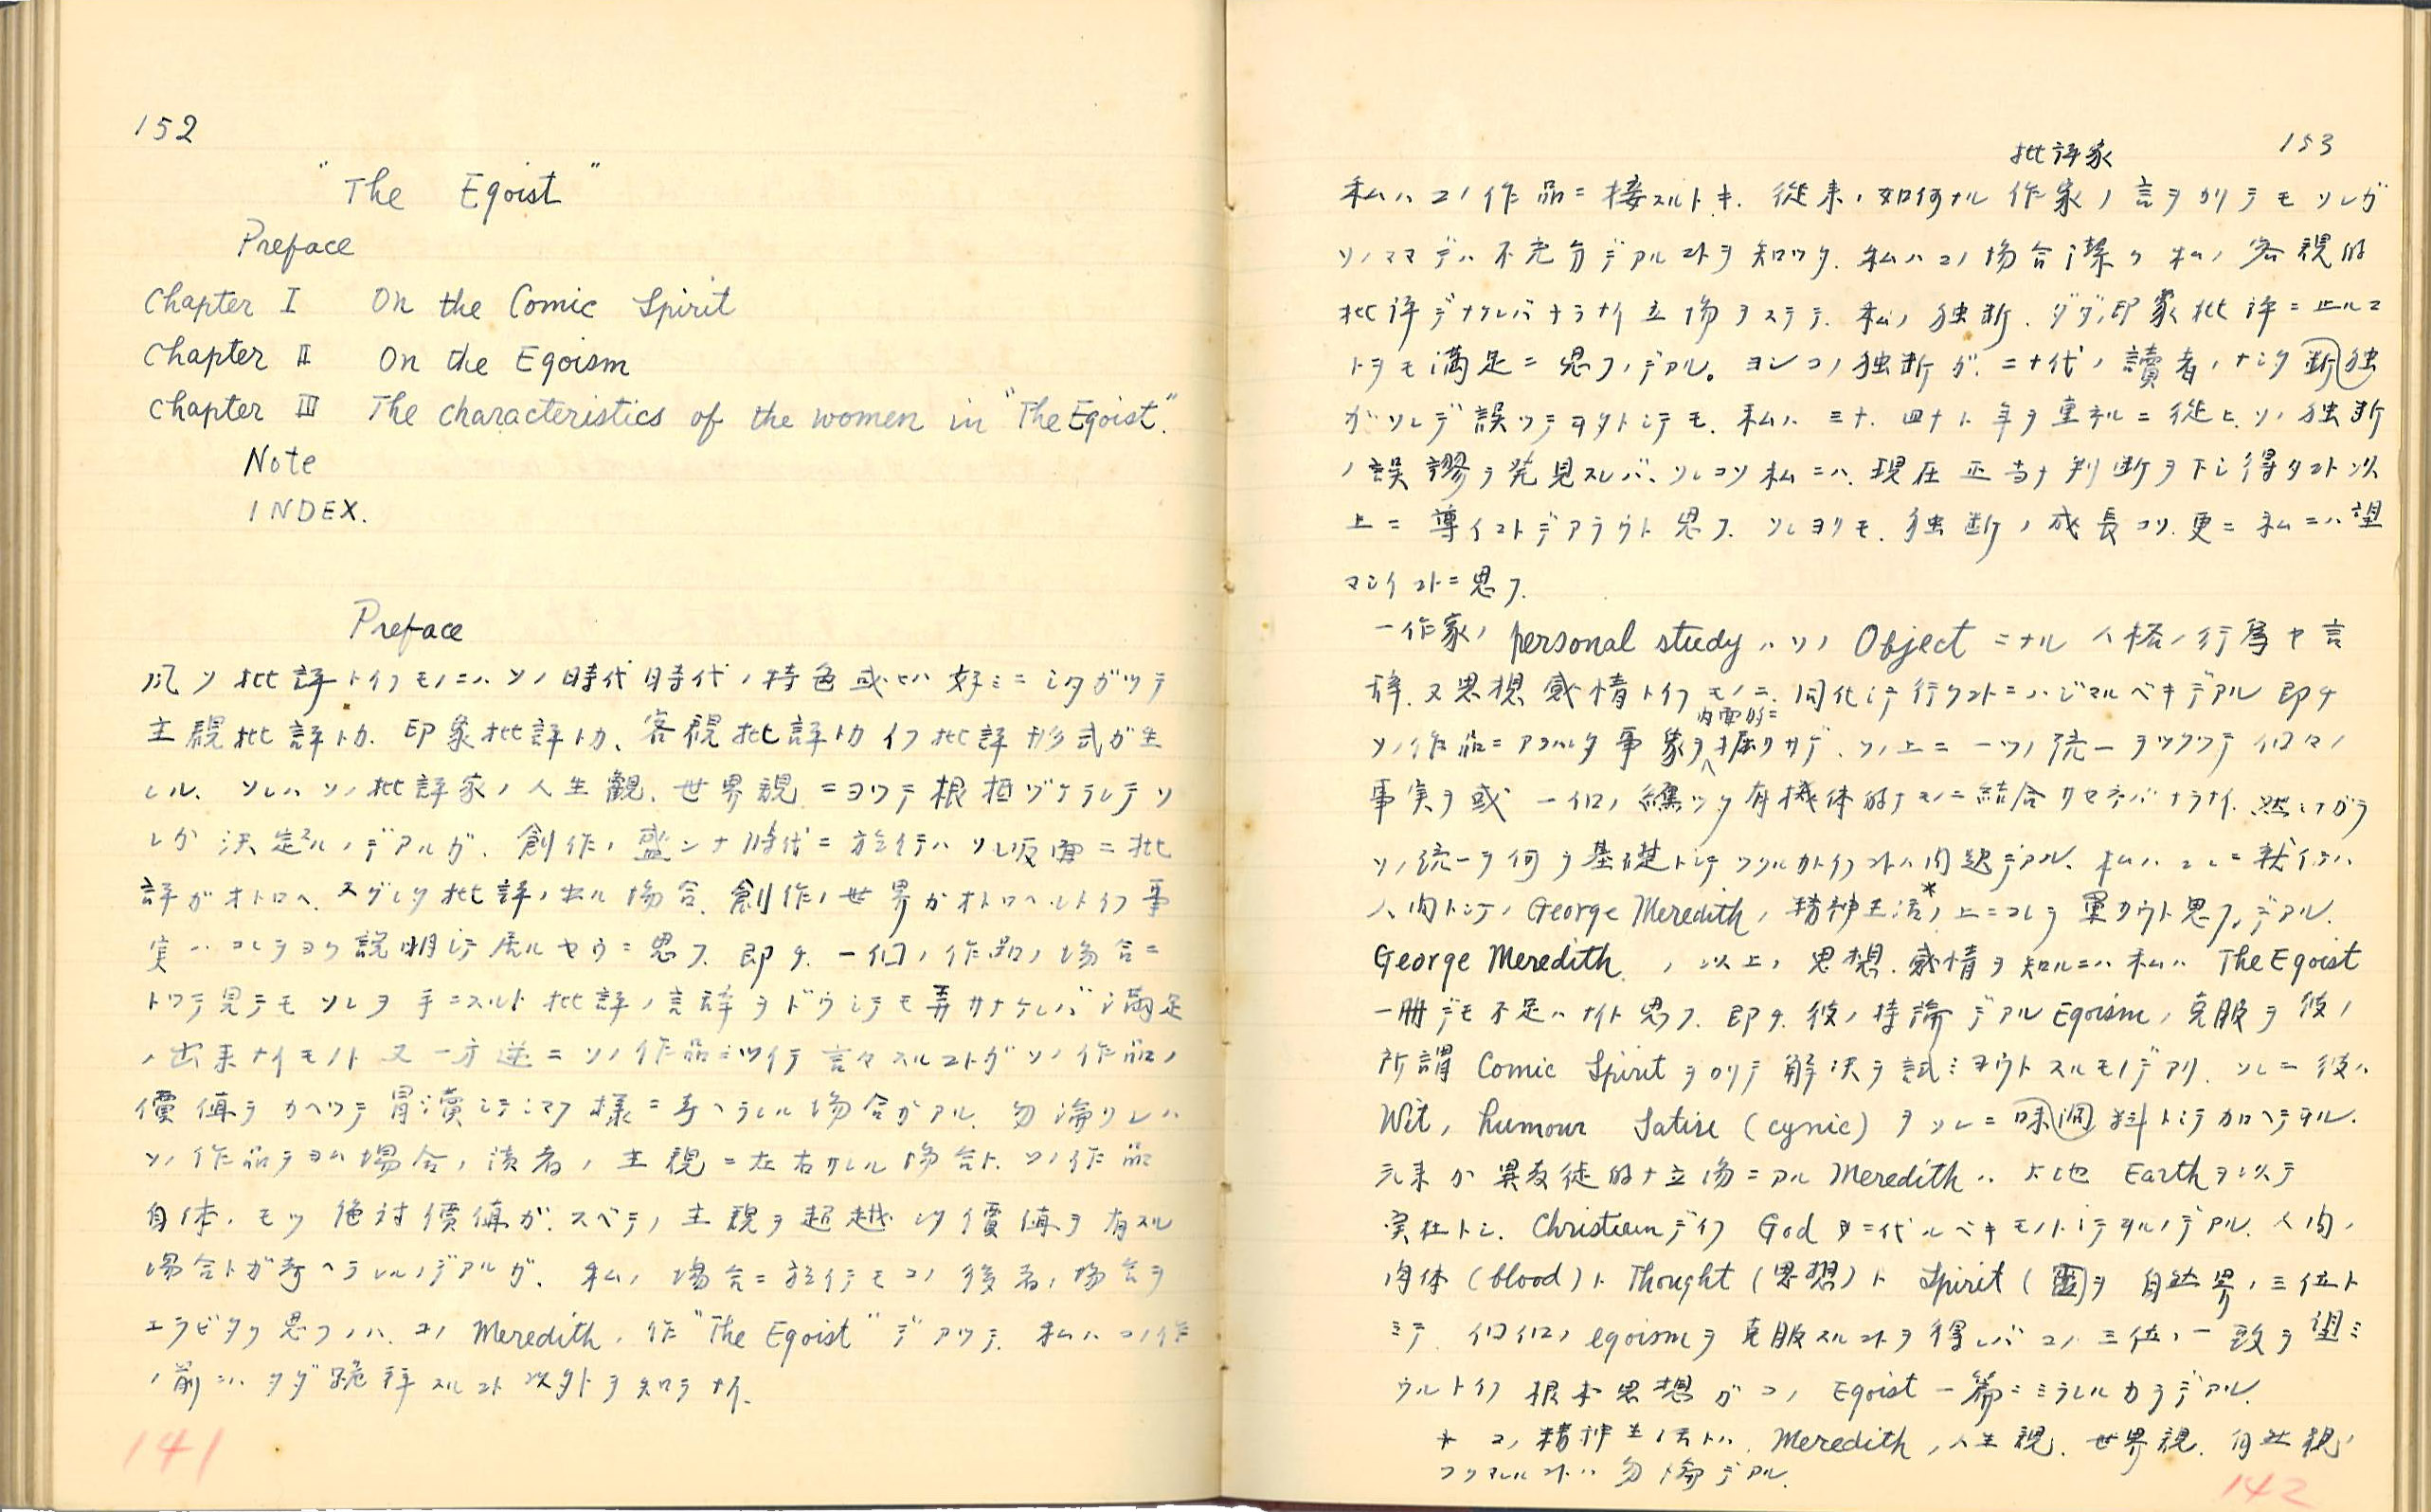 152
"The Egoist"
Preface
Chapter I On the Comic Spirit
Chapter II On the Egoism
Chapter III The characteristics of the women in "The Egoist".
Note
INDEX.
Preface
凡ソ批評トイフモノニハソノ時代時代ノ特色或ヒハ好ミニシタガツテ
主観批評トカ、印象批評トカ、客観批評トカイフ批評形式ガ生
レル、ソレハソノ批評家ノ人生観、世界観ニヨツテ根柢ヅケラレテソ
レガ決定スルノデアルガ、創作ノ盛ンナ時代ニ於イテハソレ反面ニ批
評ガオトロヘ、スグレタ批評ノ出ル場合、創作ノ世界ガオトロヘルトイフ事
実ハコレヲヨク説明シテ居ルヤウニ思フ、即チ、一個ノ作品ノ場合ニ
トツテ見テモソレヲ手ニスルト批評ノ言辞ヲドウシテモ弄サナケレバ満足
ノ出来ナイモノト又一方逆ニソノ作品ニツイテ言々スルコトガソノ作品ノ
價値ヲカヘツテ冒瀆シテシマフ様ニ考ヘラレル場合ガアル、勿論ソレハ
ソノ作品ヲヨム場合ノ読者ノ主観ニ左右サレル場合ト、ソノ作品
自体ノモツ絶対價値ガ、スベテノ主観ヲ超越シタ價値ヲ有スル
場合トガ考ヘラレルノデアルガ、私ノ場合ニ於イテモコノ後者ノ場合ヲ
エラビタク思フノハ、コノ Meredith ノ作 "The Egoist" デアツテ、私ハコノ作
ノ前ニハタダ跪拝スルコト以外ヲ知ラナイ、
141
153
批評家
私ハコノ作品ニ接スルトキ、従来ノ如何ナル作家ノ言ヲカリテモソレガ
ソノママデハ不充分デアルコトヲ知ツタ、私ハコノ場合潔ク私ノ客観的
批評デナケレバナラナイ立場ヲステテ、私ノ独断、タダ印象批評ニ止ルコ
トヲモ満足ニ思フノデアル。ヨシコノ独断ガ、二十代ノ讀者ノナシタ断独
ガソレデ誤ツテヰタトシテモ、私ハ三十、四十ト年ヲ重ネルニ従ヒ、ソノ独断
ノ誤謬ヲ発見スレバ、ソレコソ私ニハ、現在正当ナ判断ヲ下シ得タコト以
上ニ尊イコトデアラウト思フ、ソレヨリモ、独断ノ成長コソ、更ニ私ニハ望
マシイコトニ思フ、
一作家ノ personal study ハソノ Object ニナル人格ノ行為ヤ言
辞、又思想感情トイフモノニ、同化シテ行クコトニハジマルベキデアル即チ
内面的ニ
ソノ作品ニアラハレタ事象ヲ掘リサゲ、ソノ上ニ一ツノ統一ヲツクツテ個々ノ
事実ヲ或一個ノ纏ツタ有機体的ナモノニ結合サセネバナラナイ、然シナガラ
ソノ統一ヲ何ヲ基礎トシテツクルカトイフコトハ問題デアル、私ハコレニ就イテハ
人間トシテノ George Meredith ノ精神生活*ノ上ニコレヲ置カウト思フノデアル、
George Meredith ノ、以上ノ思想、感情ヲ知ルニハ私ハ The Egoist
一冊デモ不足ハナイト思フ、即チ、彼ノ持論デアル Egoism ノ克服ヲ彼ノ
所謂 Comic Spirit ヲカリテ解決ヲ試ミヨウトスルモノデアリ、ソレニ彼ハ
Wit, humour Satire (cynic) ヲソレニ味調料トシテ加ヘテヰル、
元来ガ異教徒的ナ立場ニアル Meredith ハ大地 Earth ヲ以テ
実在トシ、Christian デイフ God ニ代ルベキモノトシテヰルノデアル、人間ノ
肉体 (blood) ト Thought (思想) ト Spirit (霊) ヲ自然界ノ三位ト
ミテ、個個ノ egoism ヲ克服スルコトヲ得レバコノ三位ノ一致ヲ望ミ
ウルトイフ根本思想ガコノ Egoist 一篇ニミラレルカラデアル、
* コノ精神生活トハ、Meredith ノ人生観、世界観、自然観ノ
フクマレルコトハ勿論デアル、
142